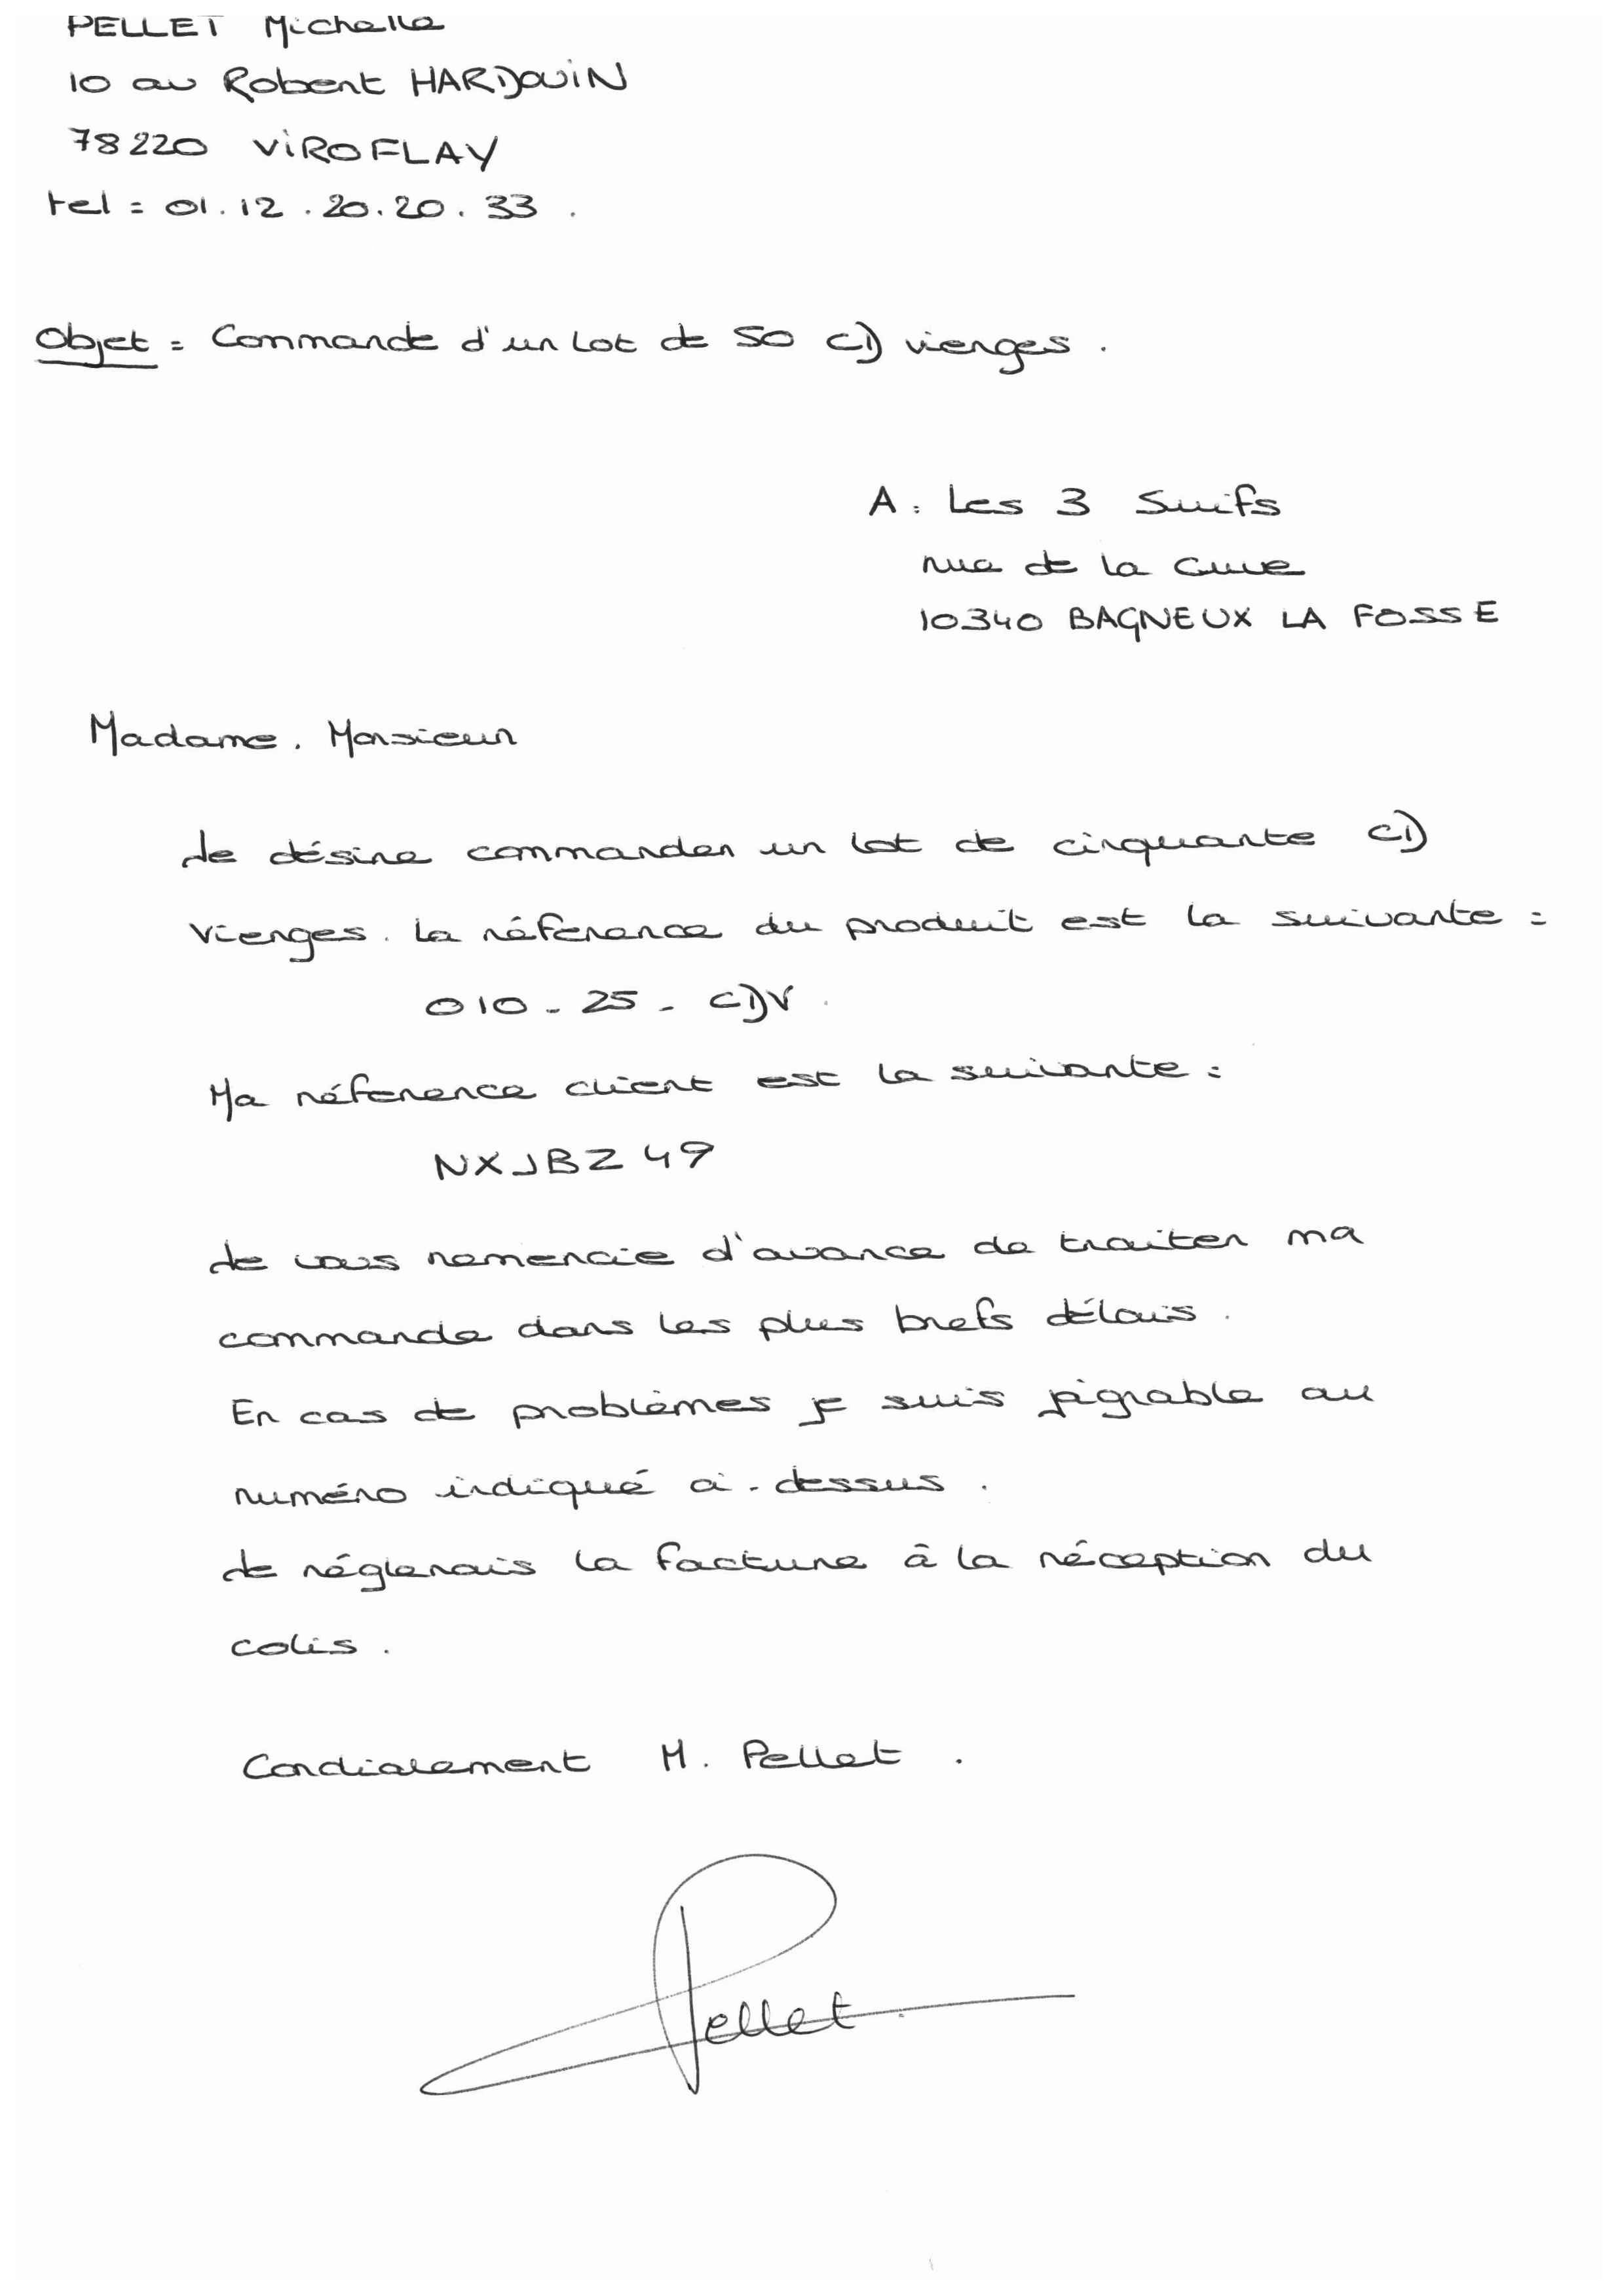 PELLET Michelle
10 av Robert HARDOUIN
78220 VIROFLAY
tel : 01.12.20.20.33.
Objet : Commande d'un lot de 50 CD vierges.
A : Les 3 Suifs
rue de la cuve
10340 BAGNEUX LA FOSSE
Madame, Monsieur
Je désire commander un lot de cinquante CD
vierges. La référence du produit est la suivante :
010 - 25 - CDV.
Ma référence client est la suivante :
NXJBZ49
Je vous remercie d'avance de traiter ma
commande dans les plus brefs délais.
En cas de problèmes je suis joignable au
numéro indiqué ci-dessus.
Je réglerais la facture à la réception du
colis.
Cordialement M. Pellet.
Pellet.